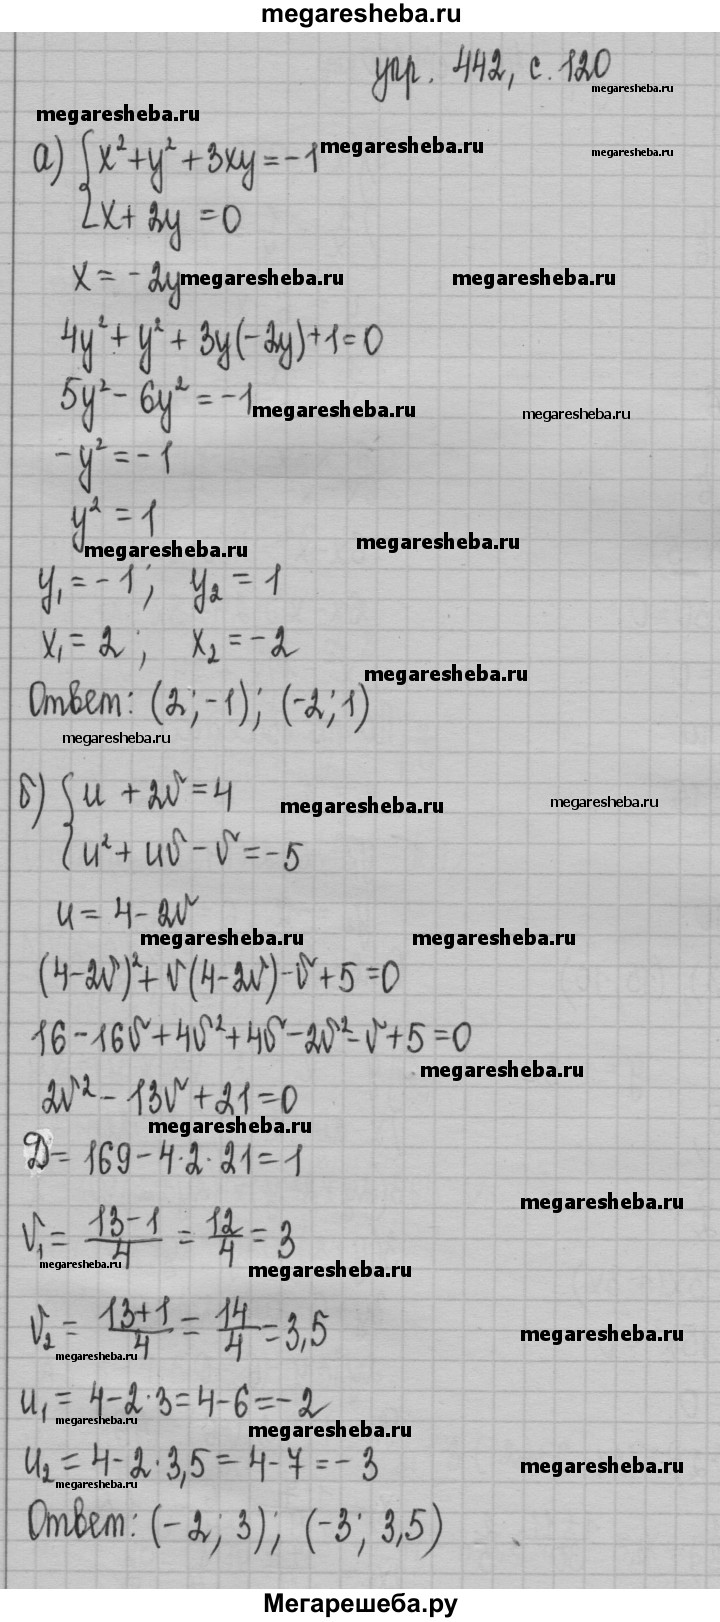 megaresheba.ru
упр. 442, с. 120
megaresheba.ru
megaresheba.ru
а) { x² + y² + 3xy = -1 megaresheba.ru megaresheba.ru
x + 2y = 0
x = -2y megaresheba.ru megaresheba.ru
4y² + y² + 3y(-2y) + 1 = 0
5y² - 6y² = -1 megaresheba.ru megaresheba.ru
-y² = -1
y² = 1
megaresheba.ru megaresheba.ru
y₁ = -1; y₂ = 1
x₁ = 2; x₂ = -2
megaresheba.ru
Ответ: (2; -1); (-2; 1)
megaresheba.ru
б) { u + 2v = 4 megaresheba.ru megaresheba.ru
u² + uv - v = -5
u = 4 - 2v
megaresheba.ru megaresheba.ru
(4-2v)² + v(4-2v) - v + 5 = 0
16 - 16v + 4v² + 4v - 2v² - v + 5 = 0
megaresheba.ru
2v² - 13v + 21 = 0
megaresheba.ru
Д = 169 - 4·2·21 = 1
megaresheba.ru
v₁ = (13-1)/4 = 12/4 = 3
megaresheba.ru megaresheba.ru
v₂ = (13+1)/4 = 14/4 = 3,5 megaresheba.ru
megaresheba.ru
u₁ = 4 - 2·3 = 4 - 6 = -2
megaresheba.ru megaresheba.ru
u₂ = 4 - 2·3,5 = 4 - 7 = -3 megaresheba.ru
megaresheba.ru
Ответ: (-2; 3); (-3; 3,5)
Мегарешеба.ру